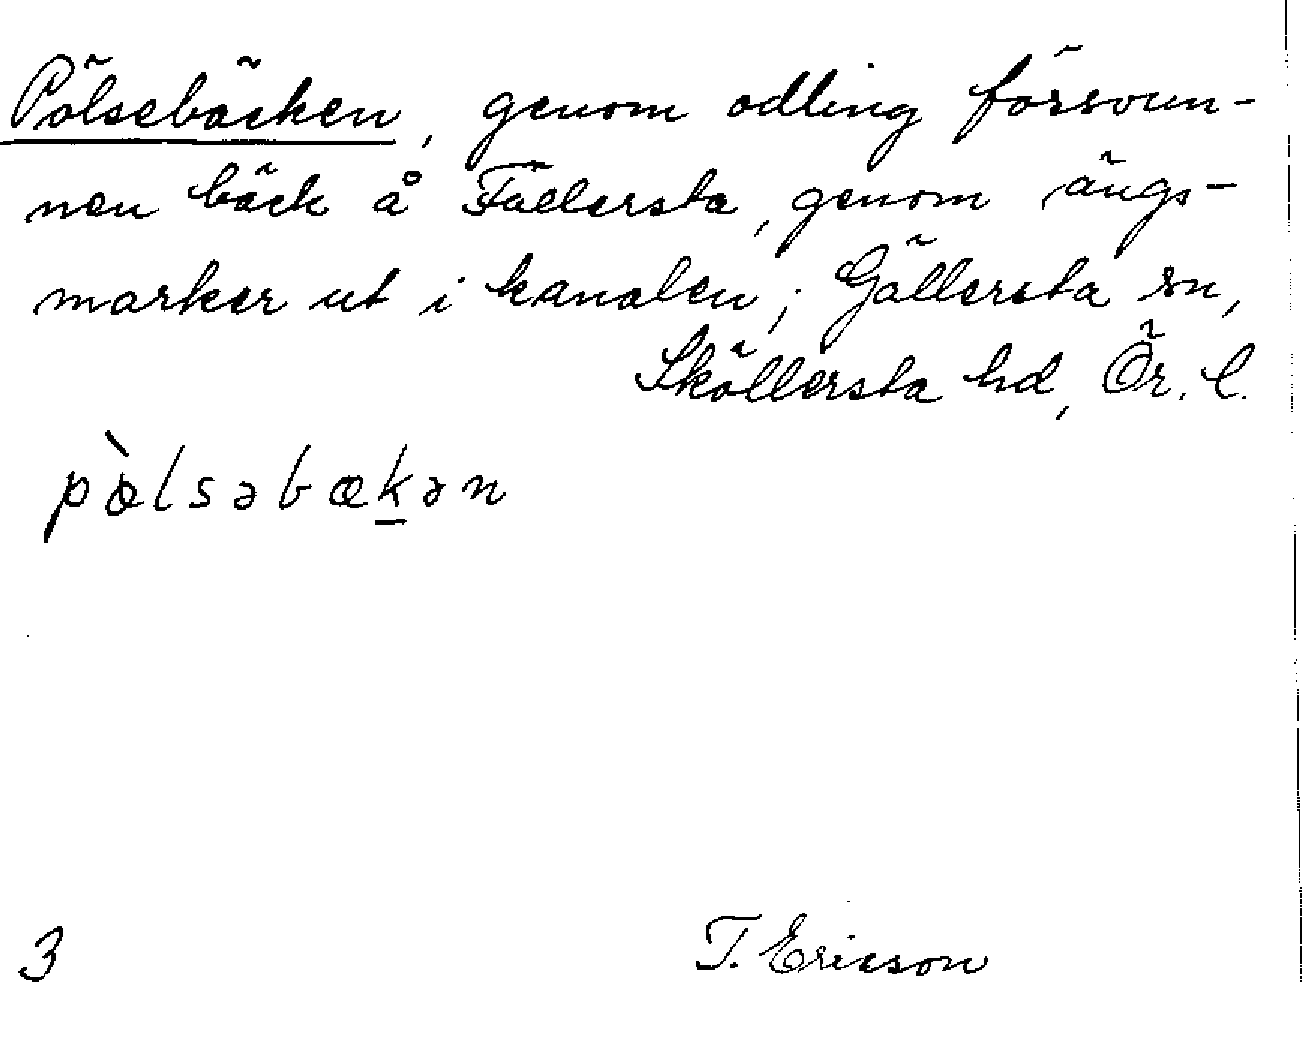 Pölsebäcken, genom odling försvun-
nen bäck å Fällersta, genom ängs-
marker ut i kanalen; Gällersta sn,
Sköllersta hd, Ör. l.
pœ̀lsəbækən
3 T. Ericson